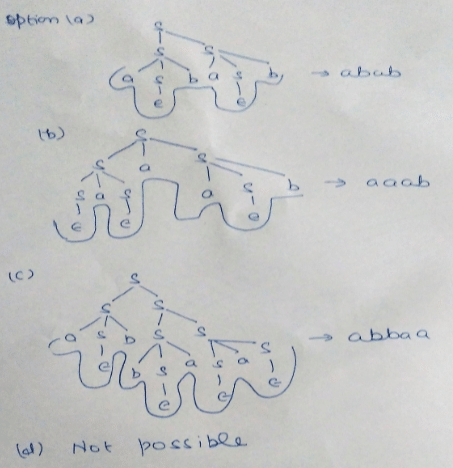 option (a)
S
S S
a S b a S b → abab
e e
(b) S
S a S
S a S a S b → aaab
e e e
(c) S
S S
a S b S S → abbaa
e b S a S a S
e e e
(d) Not possible